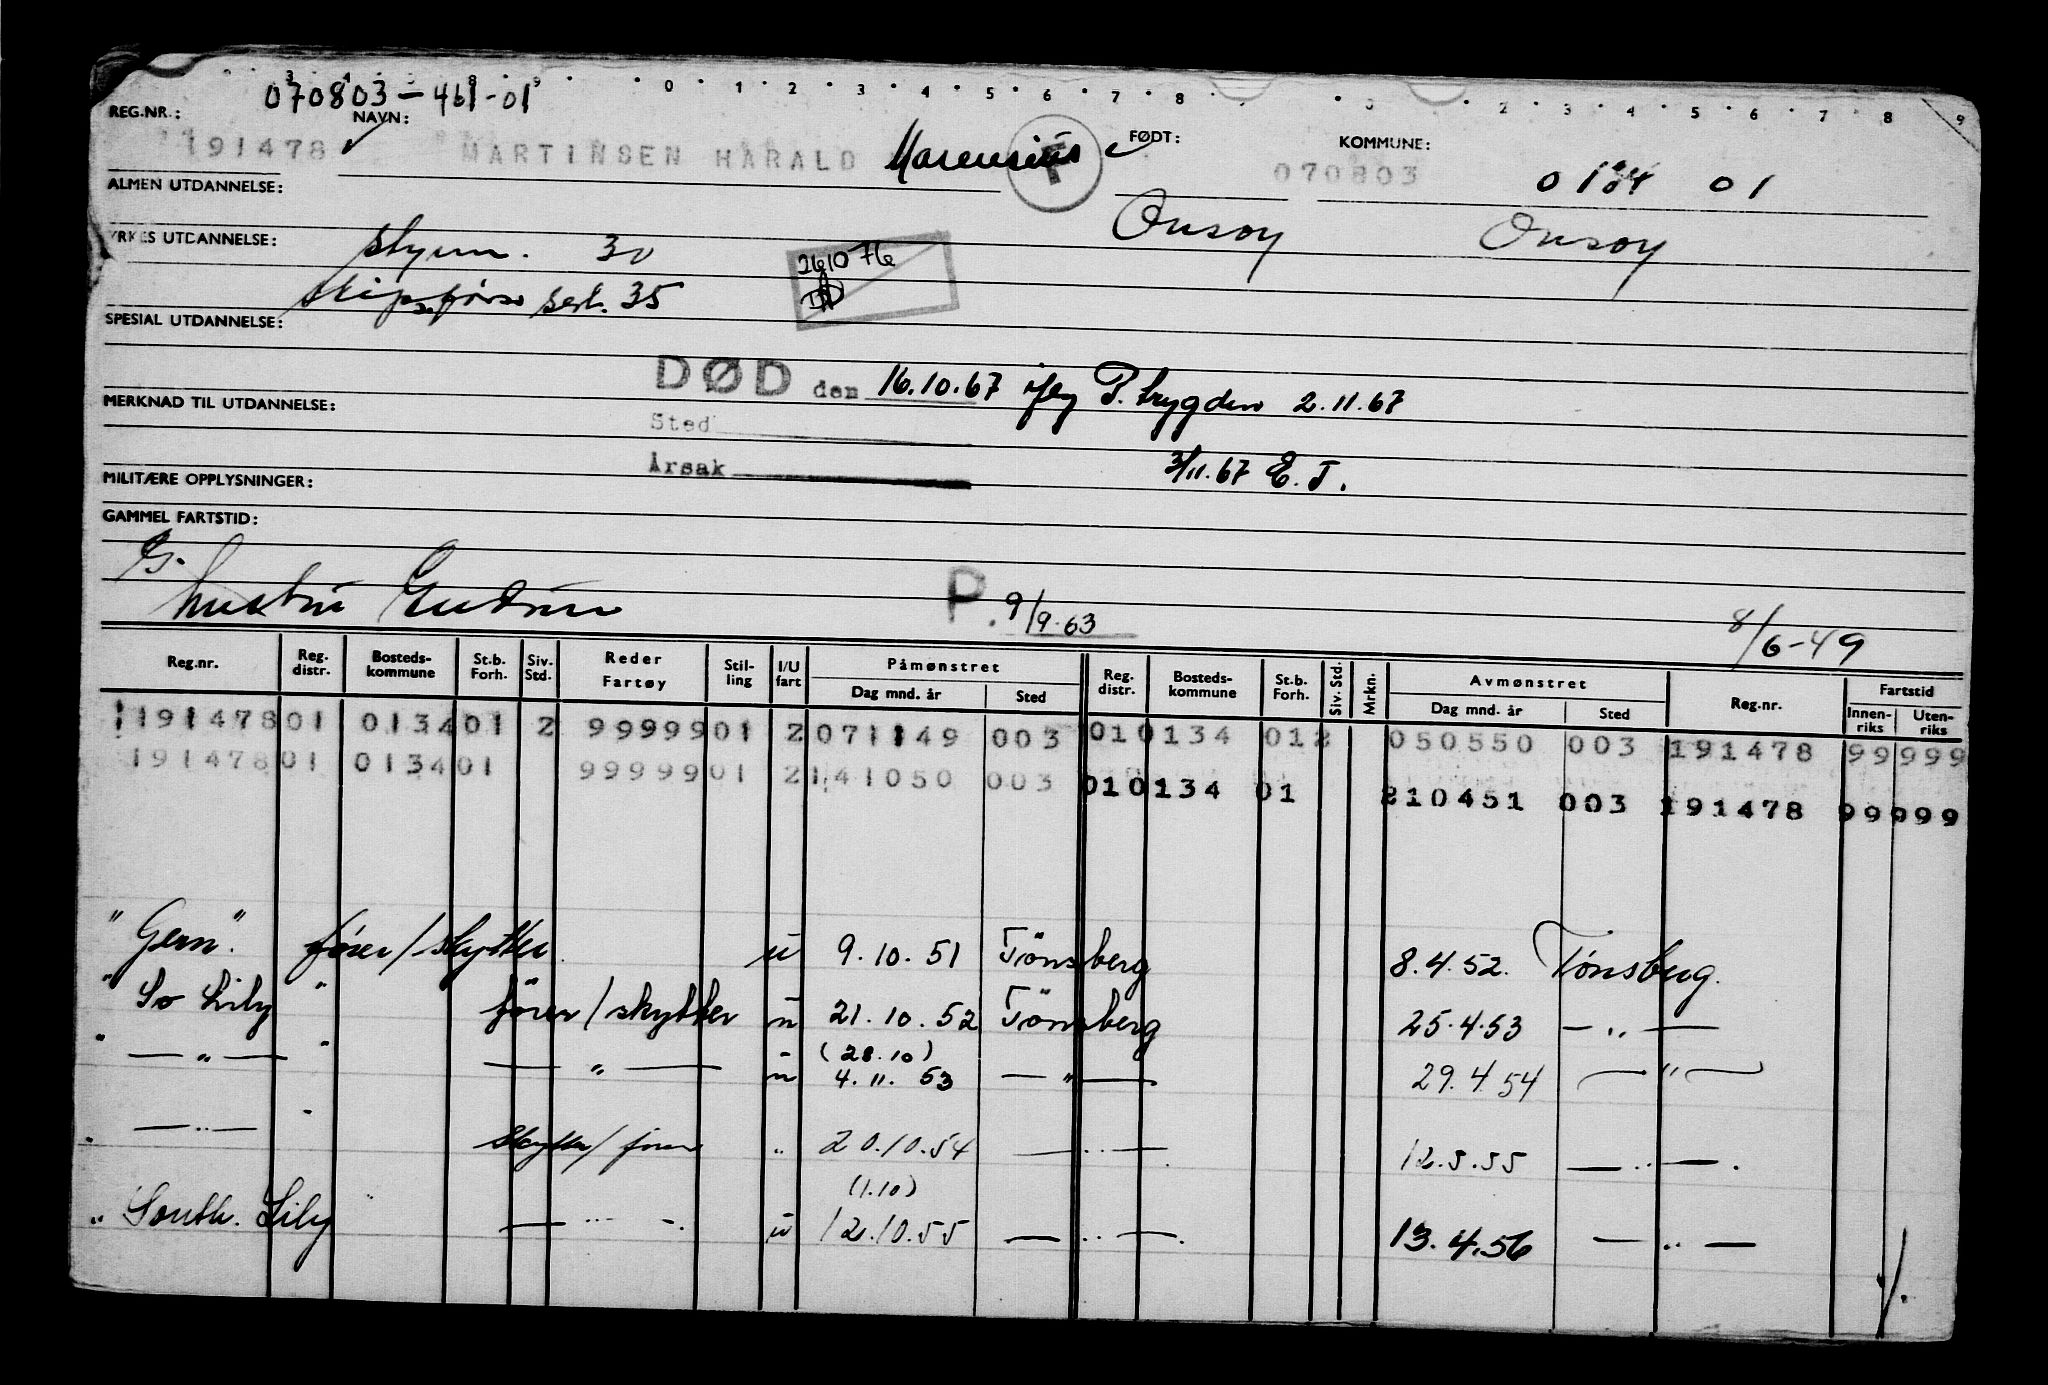 3 4 8 9 0 1 2 3 4 5 6 7 8 2 3 4 5 6 7 8 9
REG.NR.: 070803-461-01
NAVN: FØDT: KOMMUNE:
191478 MARTINSEN HARALD Marensius F 070803 0134 01
ALMEN UTDANNELSE: Onsøy Onsøy
YRKES UTDANNELSE: styrm. 30 261076
skipsfører sert. 35
SPESIAL UTDANNELSE:
DØD den 16.10.67 iflg P. trygden 2.11.67
MERKNAD TIL UTDANNELSE:
Sted
Årsak 3/11.67 E. T.
MILITÆRE OPPLYSNINGER:
GAMMEL FARTSTID:
G.
hustru Gudrun P. 9/9-63 8/6-49
Reg.nr. Reg. distr. Bosteds-kommune St.b. Forh. Siv. Std. Reder Fartøy Stil-ling I/U fart Påmønstret Dag mnd. år Sted Reg. distr. Bosteds-kommune St.b. Forh. Siv. Std. Mrkn. Avmønstret Dag mnd. år Sted Reg.nr. Fartstid Innen-riks Uten-riks
191478 01 0134 01 2 99999 01 2 071149 003 01 0134 01 2 050550 003 191478 99999
191478 01 0134 01 99999 01 2 141050 003 01 0134 01 210451 003 191478 99999
"Gern". fører/skytter u 9.10.51 Tönsberg 8.4.52. Tønsberg.
"So Lily" fører/skytter u 21.10.52 Tönsberg 25.4.53 — " —
" — " — " — " — u (28.10) 4.11.53 — " — 29.4.54 — " —
" — " — " Skytter/fører " 20.10.54 — " — . 12.5.55 — " — .
(1.10)
"South. Lily" — " — . u 12.10.55 — " — . 13.4.56 — " —